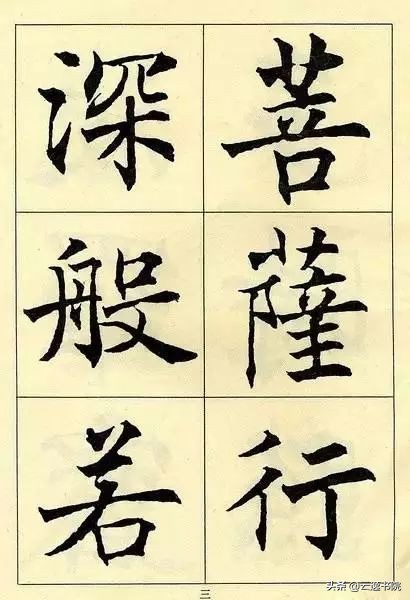 菩薩行
深般若
三
头条@云逸书院